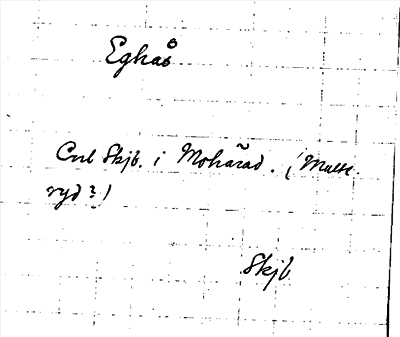 Eghås
Enl Skjb. i Mohärad. (Malse-
ryd?)
Skjb